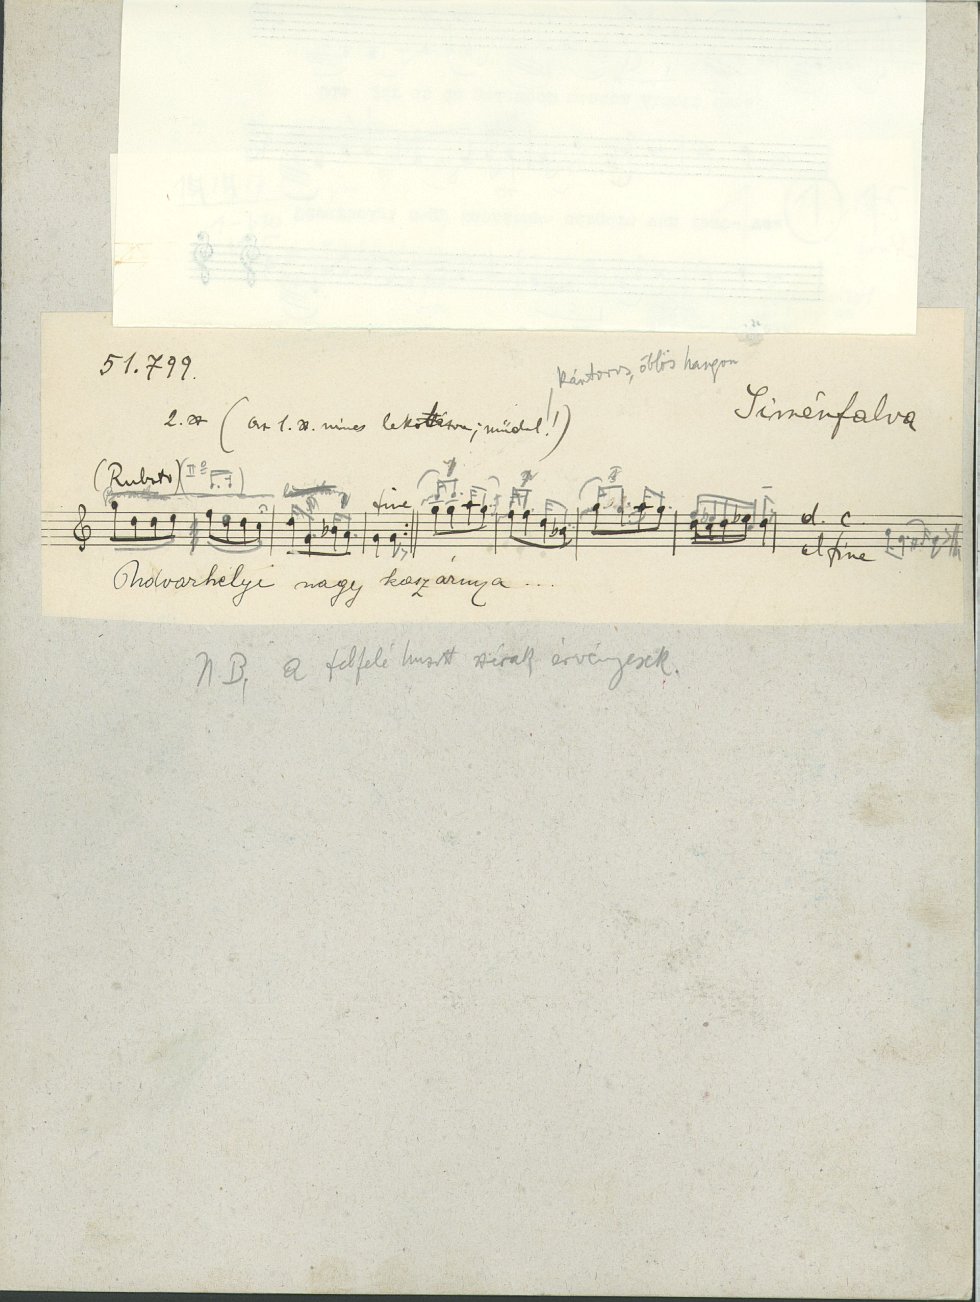 51.799.
kántoros, öblös hangon
Siménfalva
2. sz (az 1. sz. nincs lekottázva; műdal!!)
(Rubato) (II
fine
d. c.
al fine
Udvarhelyi nagy kaszárnya ...
N.B. a felfelé húzott szárak érvényesek.